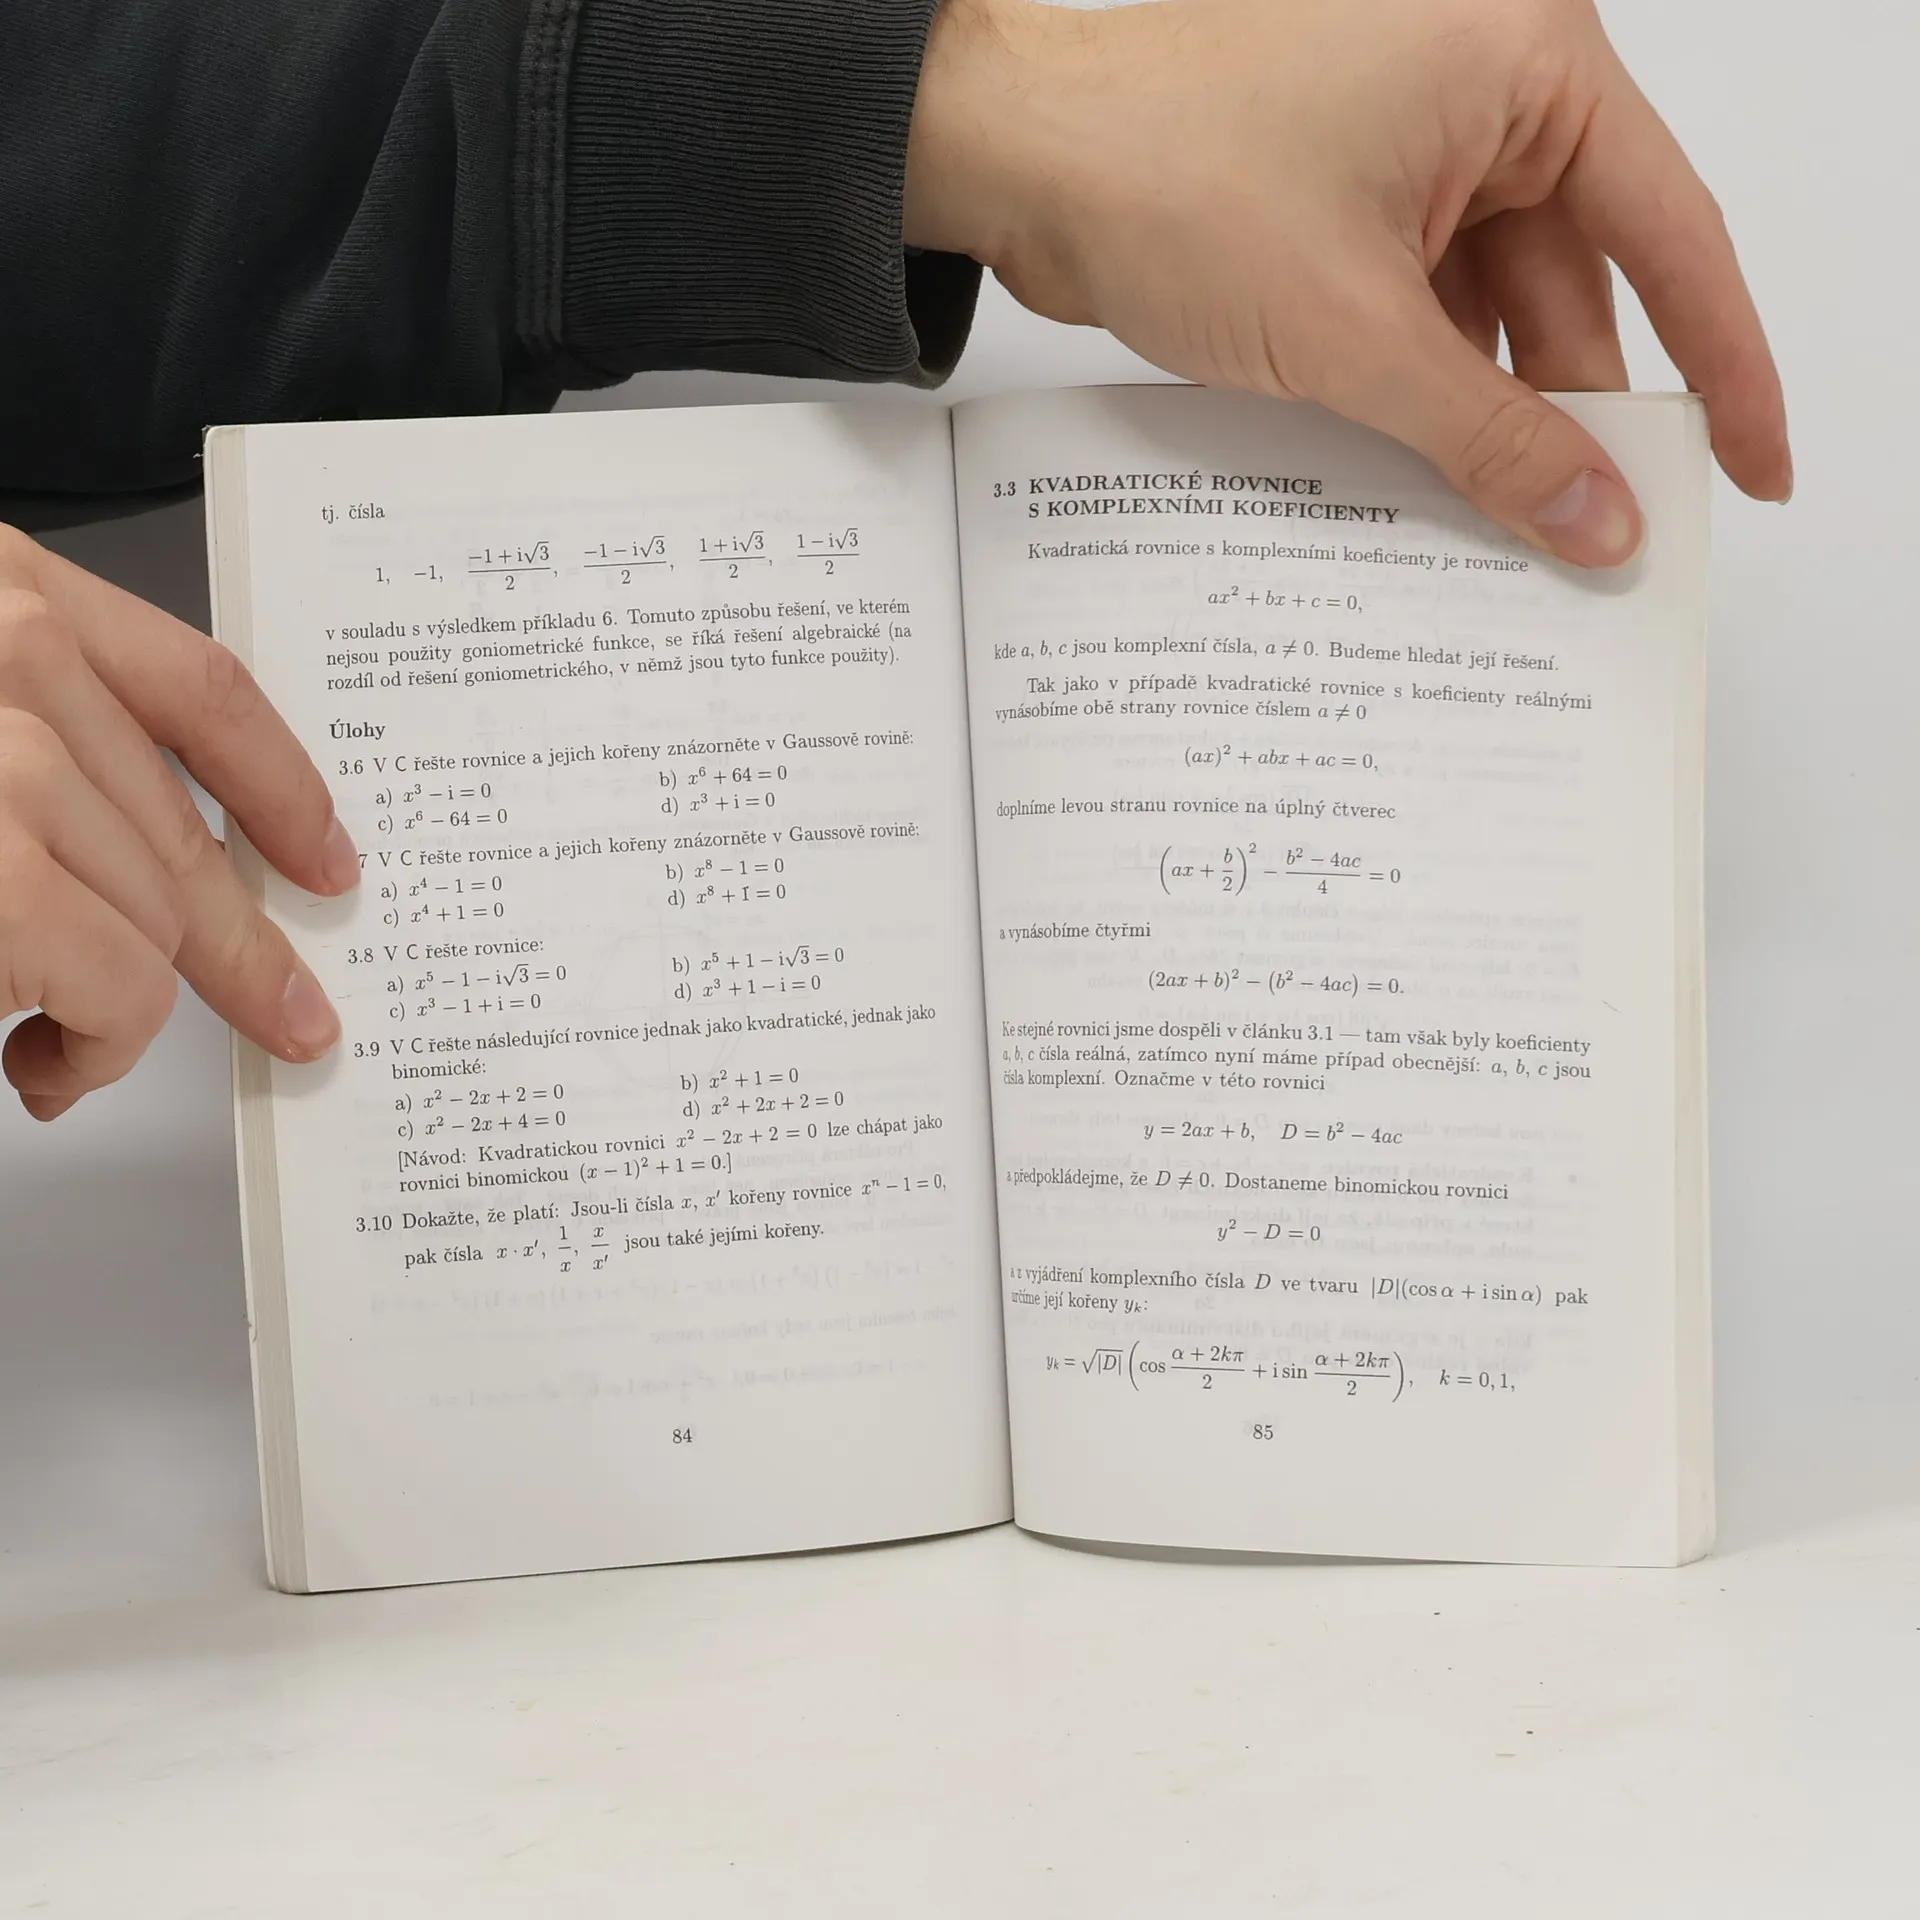 tj. čísla
1, −1, (−1 + i√3)/2, (−1 − i√3)/2, (1 + i√3)/2, (1 − i√3)/2
v souladu s výsledkem příkladu 6. Tomuto způsobu řešení, ve kterém
nejsou použity goniometrické funkce, se říká řešení algebraické (na
rozdíl od řešení goniometrického, v němž jsou tyto funkce použity).
Úlohy
3.6 V C řešte rovnice a jejich kořeny znázorněte v Gaussově rovině:
a) x³ − i = 0 b) x⁶ + 64 = 0
c) x⁶ − 64 = 0 d) x³ + i = 0
7 V C řešte rovnice a jejich kořeny znázorněte v Gaussově rovině:
a) x⁴ − 1 = 0 b) x⁸ − 1 = 0
c) x⁴ + 1 = 0 d) x⁸ + 1 = 0
3.8 V C řešte rovnice:
a) x⁵ − 1 − i√3 = 0 b) x⁵ + 1 − i√3 = 0
c) x³ − 1 + i = 0 d) x³ + 1 − i = 0
3.9 V C řešte následující rovnice jednak jako kvadratické, jednak jako
binomické:
a) x² − 2x + 2 = 0 b) x² + 1 = 0
c) x² − 2x + 4 = 0 d) x² + 2x + 2 = 0
[Návod: Kvadratickou rovnici x² − 2x + 2 = 0 lze chápat jako
rovnici binomickou (x − 1)² + 1 = 0.]
3.10 Dokažte, že platí: Jsou-li čísla x, x′ kořeny rovnice xⁿ − 1 = 0,
pak čísla x · x′, 1/x, x/x′ jsou také jejími kořeny.
84
3.3 KVADRATICKÉ ROVNICE
S KOMPLEXNÍMI KOEFICIENTY
Kvadratická rovnice s komplexními koeficienty je rovnice
ax² + bx + c = 0,
kde a, b, c jsou komplexní čísla, a ≠ 0. Budeme hledat její řešení.
Tak jako v případě kvadratické rovnice s koeficienty reálnými
vynásobíme obě strany rovnice číslem a ≠ 0
(ax)² + abx + ac = 0,
doplníme levou stranu rovnice na úplný čtverec
(ax + b/2)² − (b² − 4ac)/4 = 0
a vynásobíme čtyřmi
(2ax + b)² − (b² − 4ac) = 0.
Ke stejné rovnici jsme dospěli v článku 3.1 — tam však byly koeficienty
a, b, c čísla reálná, zatímco nyní máme případ obecnější: a, b, c jsou
čísla komplexní. Označme v této rovnici
y = 2ax + b, D = b² − 4ac
a předpokládejme, že D ≠ 0. Dostaneme binomickou rovnici
y² − D = 0
a z vyjádření komplexního čísla D ve tvaru |D|(cos α + i sin α) pak
určíme její kořeny yₖ:
yₖ = √|D| (cos (α + 2kπ)/2 + i sin (α + 2kπ)/2), k = 0, 1,
85